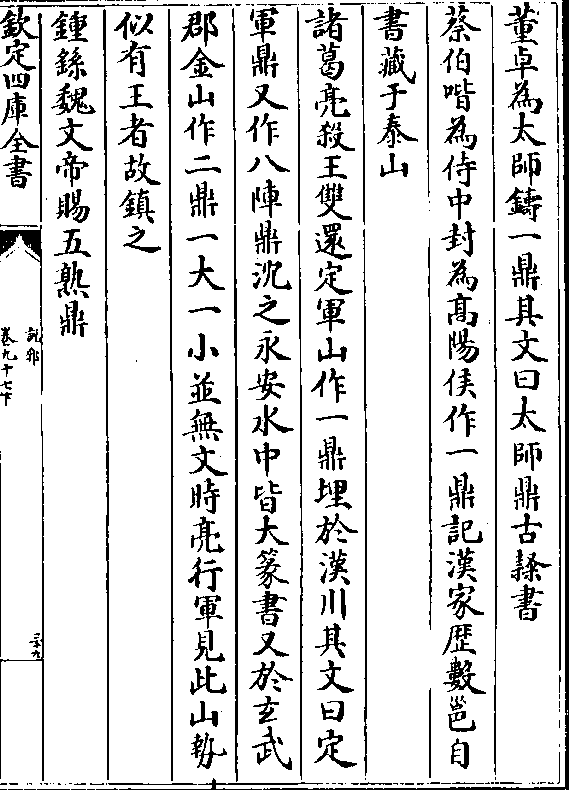 董卓為太師鑄一鼎其文曰太師鼎古隸書
蔡伯喈為侍中封為髙陽侯作一鼎記漢家歴數邕自
書藏于泰山
諸葛亮殺王雙還定軍山作一鼎埋於漢川其文曰定
軍鼎又作八陣鼎沉之永安水中皆大篆書又於玄武
郡金山作二鼎一大一小並無文時亮行軍見此山勢
似有王者故鎮之
鍾繇魏文帝賜五熟鼎
欽定四庫全書
說郛
卷九十七下
三十九